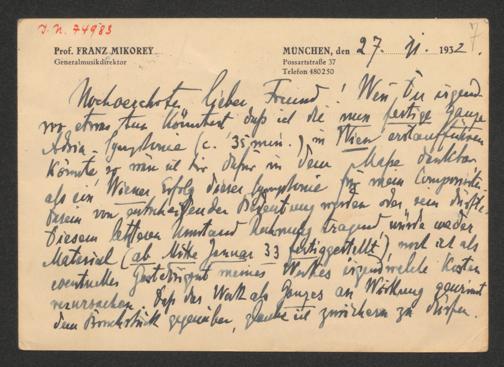 J. N. 74983
7
Prof. FRANZ MIKOREY
Generalmusikdirektor
MÜNCHEN, den 27. XI. 1932.
Possartstraße 37
Telefon 480250
Hochverehrter lieber Freund! Wenn Du irgend-
wo etwas tun könntest daß ich die nun fertige ganze
Adria-Symphonie (c. 35 min.) in Wien erstaufführen
könnte so wäre ich Dir dafür in dem Maße dankbar
als ein Wiener Erfolg dieser Symphonie für mein Componisten-
dasein von entscheidender Bedeutung werden oder sein dürfte.
Diesem letzteren Umstand Rechnung tragend würde weder
Material (ab Mitte Januar 33 fertiggestellt) noch ich als
eventueller Gastdirigent meines Werkes irgendwelche Kosten
verursachen. Daß das Werk als Ganzes an Wirkung gewinnt
dem Bruchstück gegenüber, glaube ich zusichern zu dürfen.